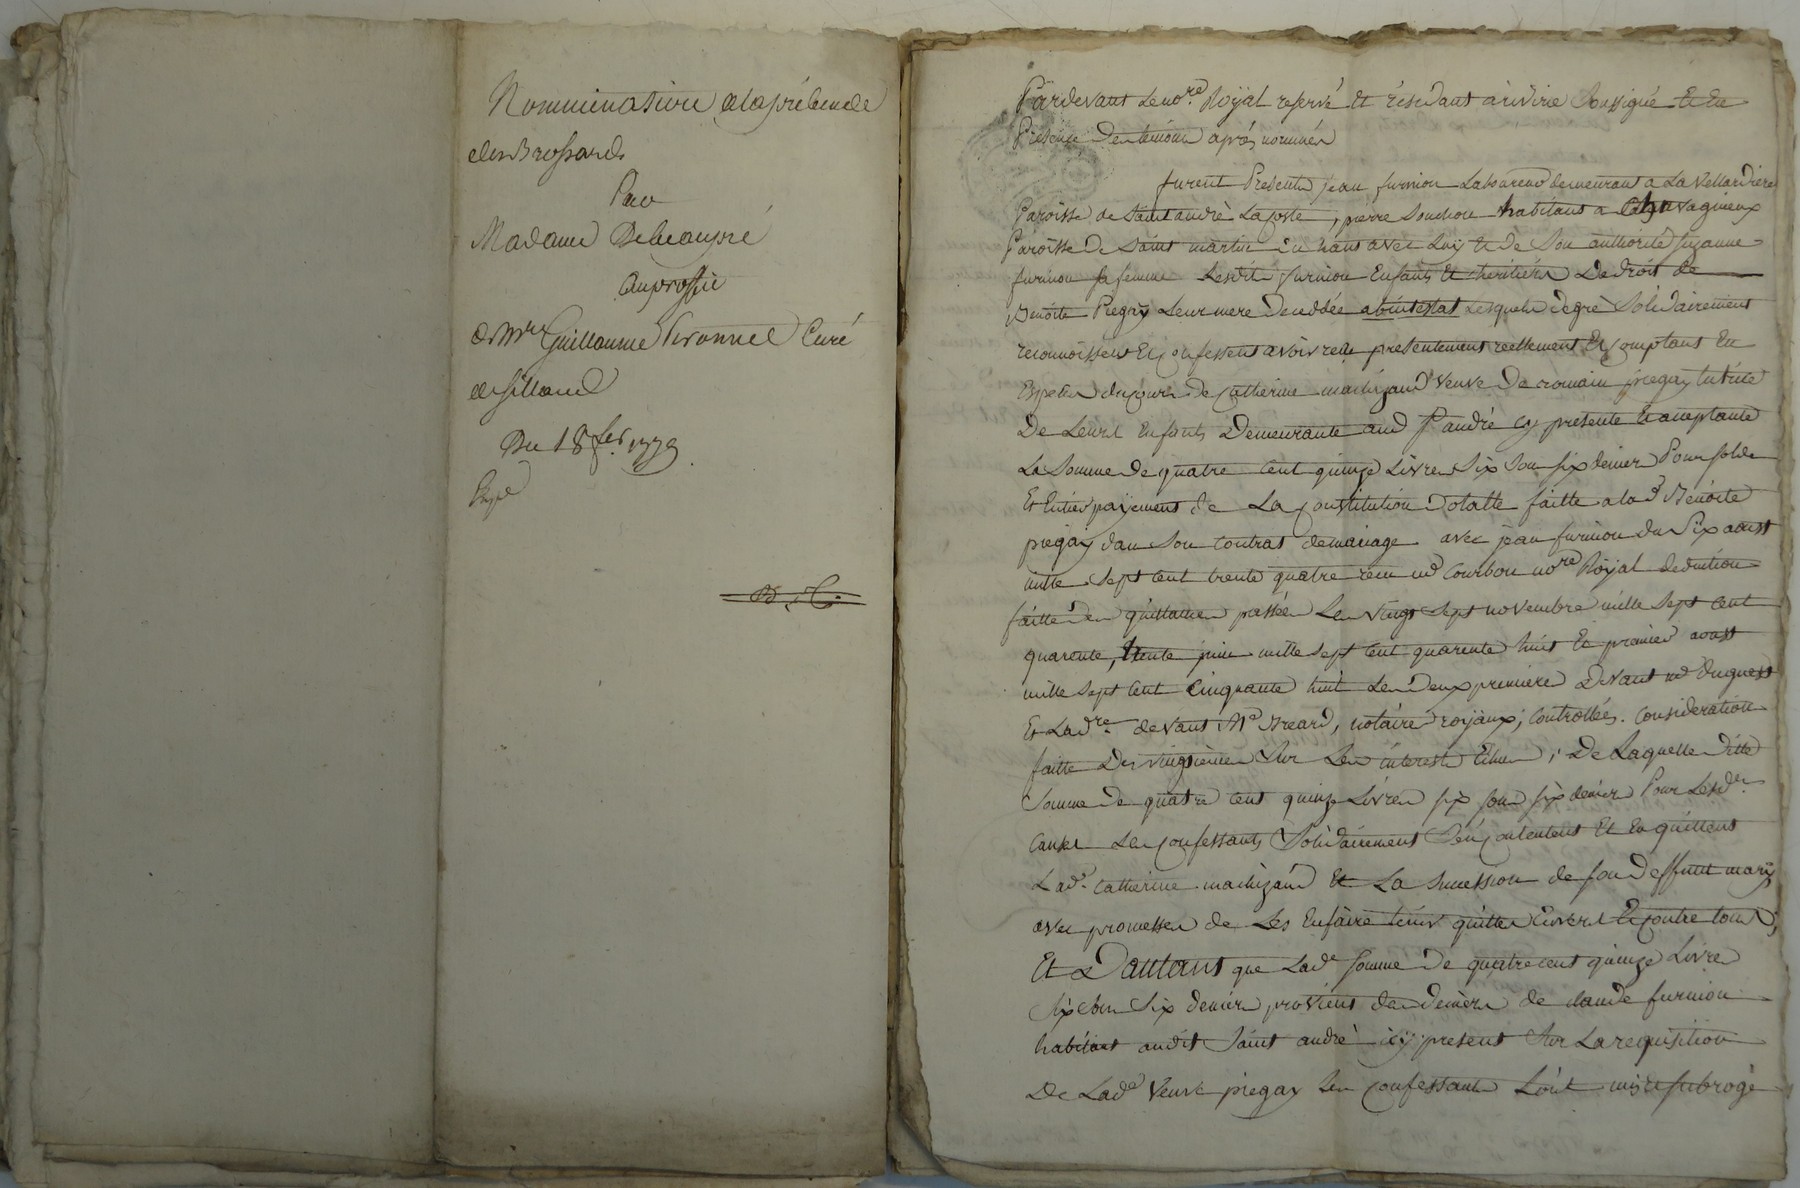 Nommination a la prébende
des Brossards
Par
Madame Debeaupré
au proffit
de Mre Guillaume Vironnel Curé
de sillans
Du 18 fer. 1779.
Exp.d
Pardevant Le no.re Roÿal reservé Et résidant à rivirie soussigné Et En
Presence des temoins aprés nommés
furent Presents jean furnion Laboureur demeurant a La Vellardiere
Paroisse de Saint andré La coste, pierre Souchon habitant a Chavagneux
Paroisse de Saint martin En haut avec Luy Et de Son authorité Suzanne
furnion sa femme Lesdits furnion Enfants Et heritiers De droit de
Benoite Piegay Leur mere Decedée abintestat Lesquels de gré Solidairement
reconnoissent Et Confessent avoir reçu presentement reellement Et Comptant En
Especes du Cours de Catherine machizaud Veuve De romain piegay tutrice
De Leurs Enfants Demeurante aud St andré Cy presente Et acceptante
La Somme de quatre Cent quinze Livres Six Sous Six deniers Pour solde
Et Entier payement de La Constitution Dotalle faitte a lad. Benoite
piegay dans Son Contrat de mariage avec jean furnion du Six aoust
mille Sept Cent trente quatre reçu me Courbon no.re Roÿal deduction
faitte des quittances passées Les Vingt Sept novembre mille Sept Cent
quarente, trente juin mille Sept Cent quarente huit Et premier aoust
mille Sept Cent Cinquante huit Les deux premieres Devant me duguest
Et La d.re devant Me Breard, notaires royaux; Controllées. Consideration
faitte Des Vingtiemes Sur Les interests Echus; De Laquelle ditte
Somme de quatre Cent quinze Livres Six Sous Six deniers Pour Lesd.
Causes Les Confessants Solidairement S'en Contentent Et En quittent
Lad. Catherine machizaud Et La Succession de son deffunt mary,
avec promesses de Les En faire tenir quittes Envers Et Contre tous,
Et D'autant que Lad. Somme De quatre Cent quinze Livres
Six Sous Six deniers provient des deniers de claude furnion
habitant audit Saint andré icy present Sur La requisition
De Lad. Veuve piegay Les Confessants L'ont mis Et subrogé